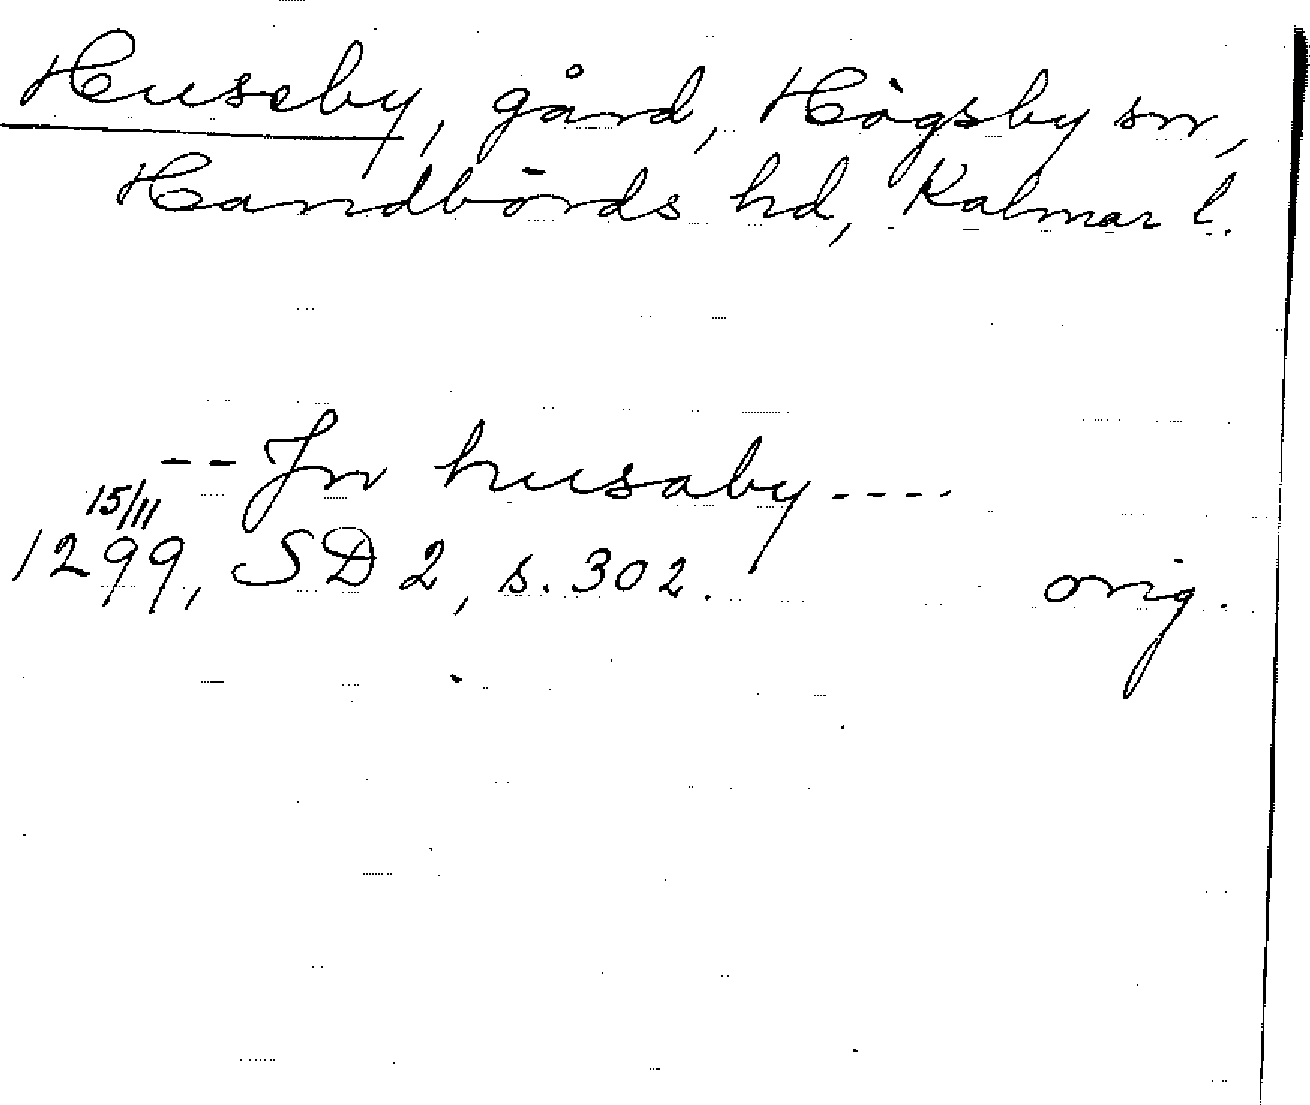 Huseby, gård, Högsby sn,
Handbörds hd, Kalmar l.
-- Jn husaby ----
15/11
1299, SD 2, s. 302. orig.